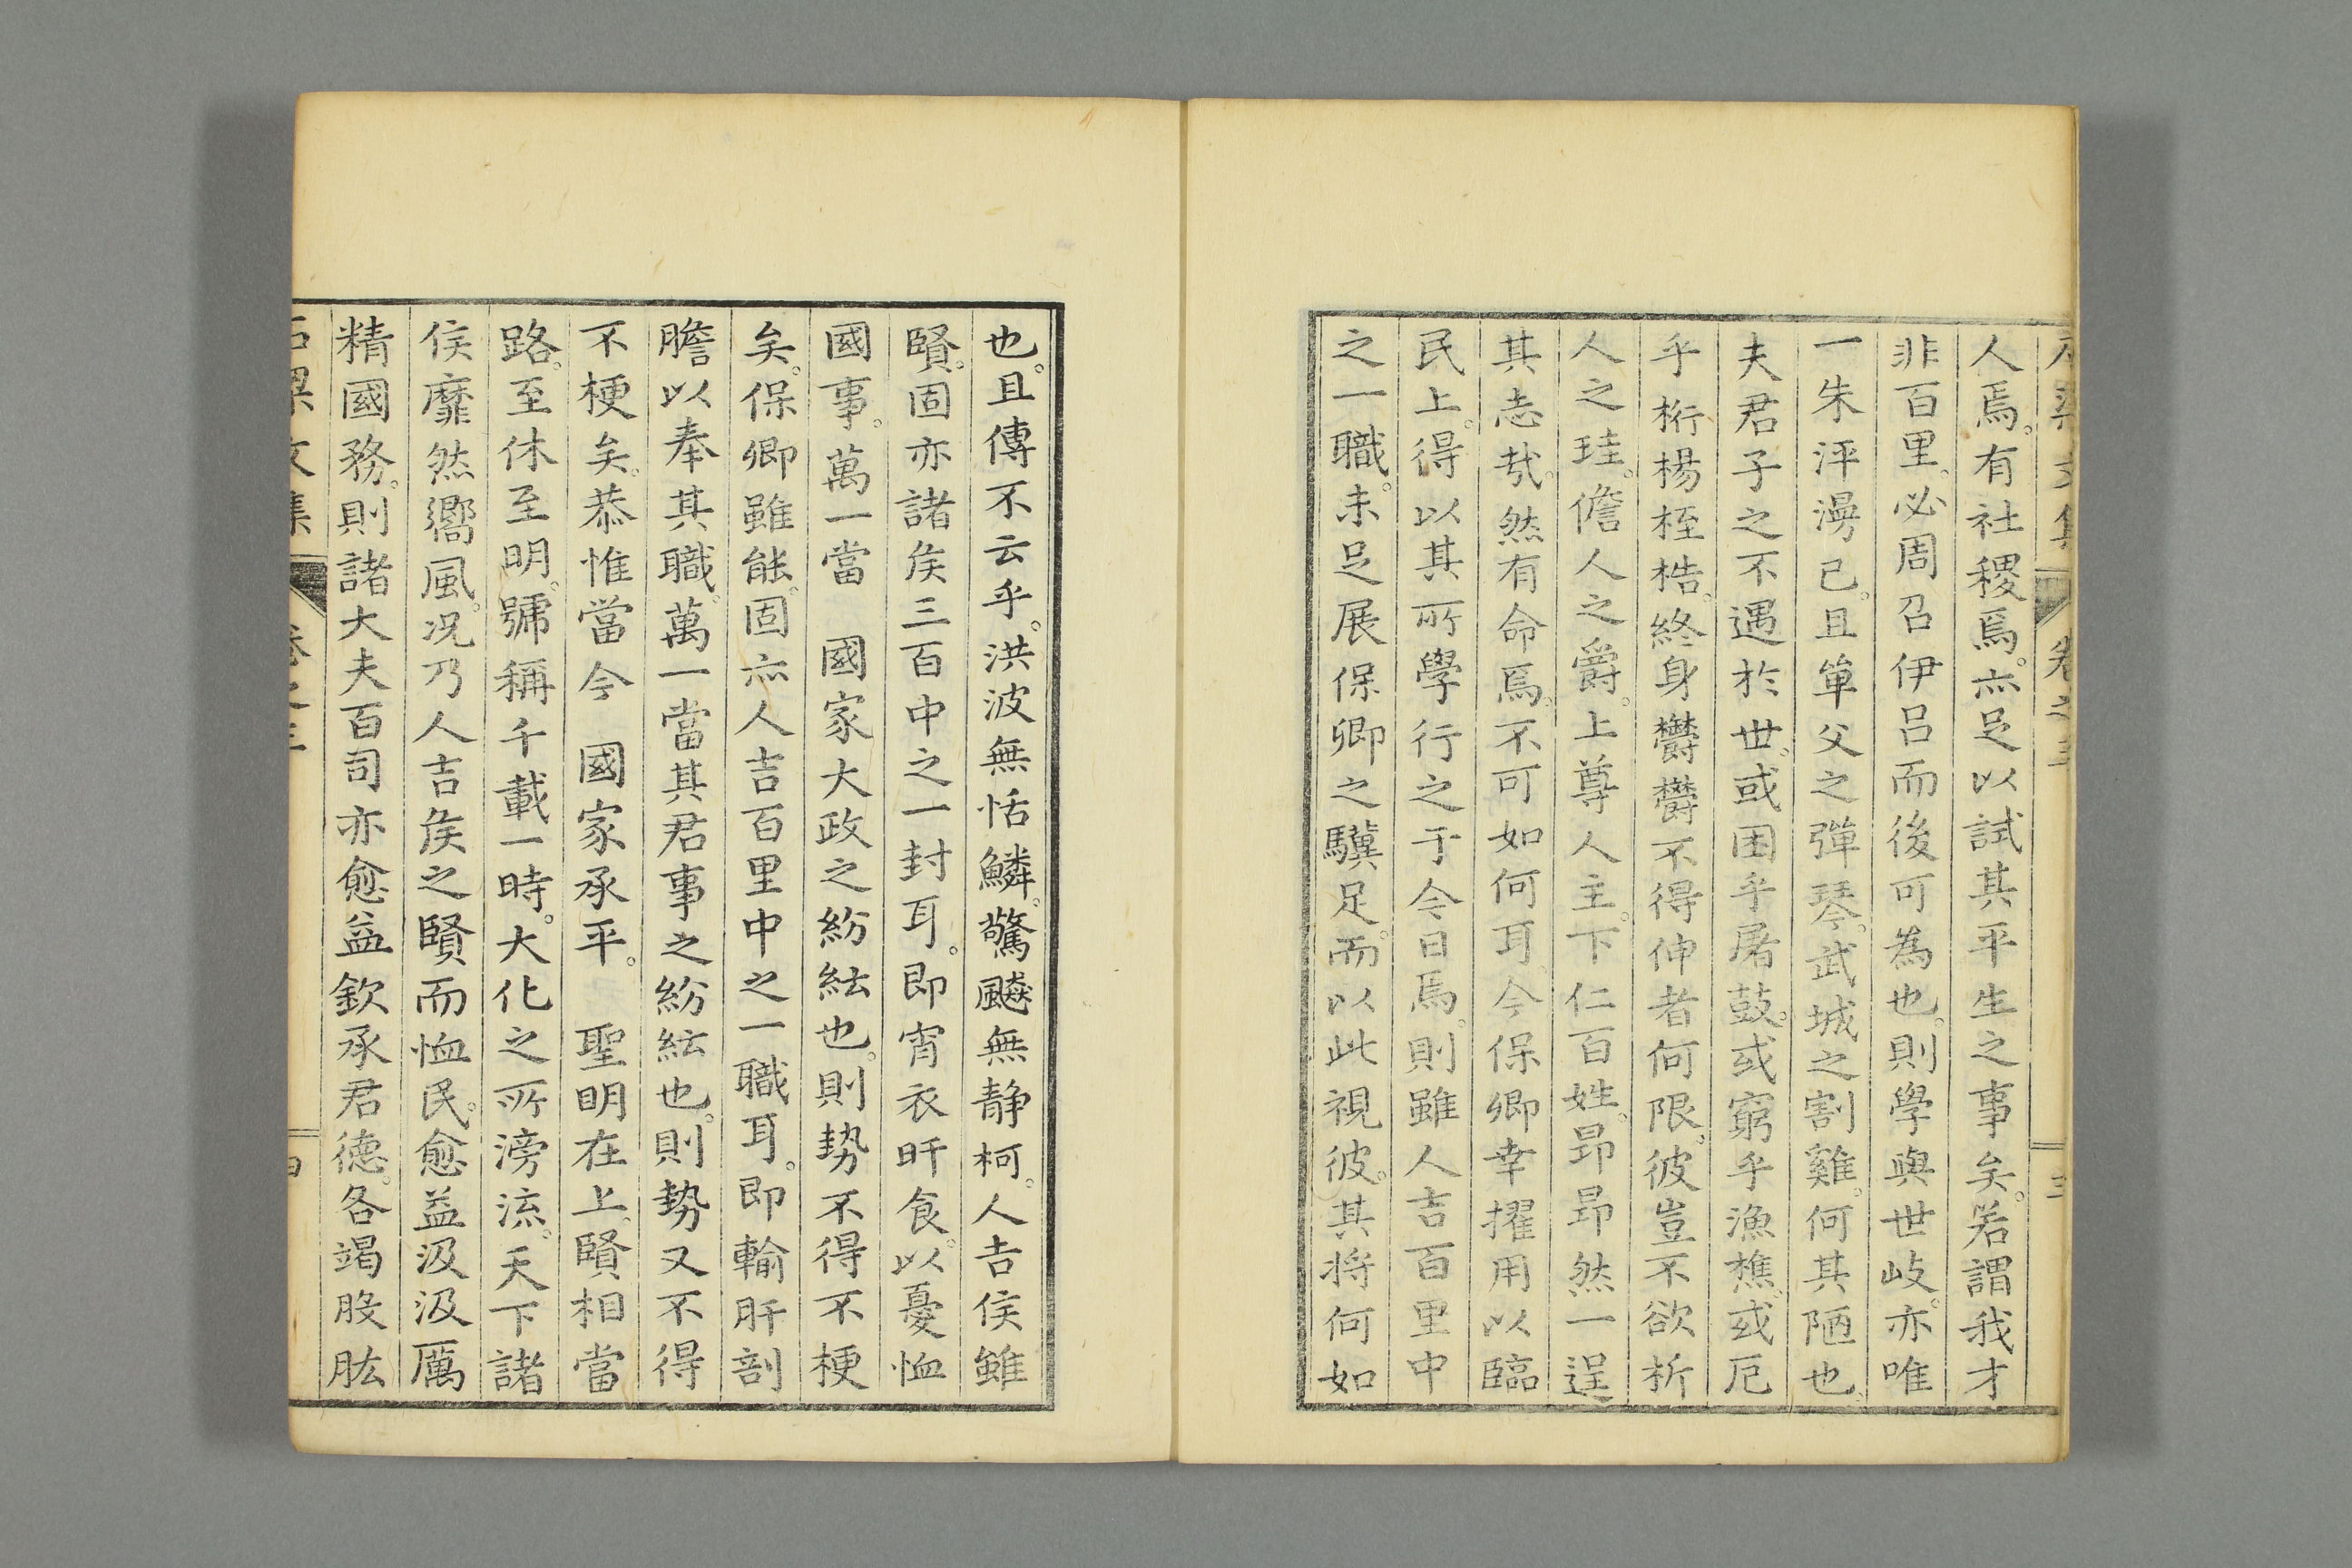 人焉。有社稷焉。亦足以試其平生之事矣。若謂我才
非百里。必周召伊呂而後可為也。則學與世岐。亦唯
一朱泙漫已。且單父之彈琴。武城之割雞。何其陋也。
夫君子之不遇於世。或困乎屠鼓。或窮乎漁樵。或厄
乎桁楊桎梏。終身欝欝不得伸者何限。彼豈不欲析
人之珪。儋人之爵。上尊人主。下仁百姓。昂昂然一逞
其志哉。然有命焉。不可如何耳。今保卿幸擢用以臨
民上。得以其所學行之于今日焉。則雖人吉百里中
之一職。未足展保卿之驥足。而以此視彼。其将何如
也。且傳不云乎。洪波無恬鱗。驚飈無静柯。人吉侯雖
賢。固亦諸矦三百中之一封耳。即宵衣旰食。以憂恤
國事。萬一當　國家大政之紛紜也。則勢不得不梗
矣。保卿雖能。固亦人吉百里中之一職耳。即輸肝剖
膽以奉其職。萬一當其君事之紛紜也。則勢又不得
不梗矣。恭惟當今　國家承平。　聖明在上。賢相當
路。至休至明。號稱千載一時。大化之所滂流。天下諸
侯靡然嚮風。况乃人吉矦之賢而恤民。愈益汲汲厲
精國務。則諸大夫百司亦愈益欽承君德。各竭股肱